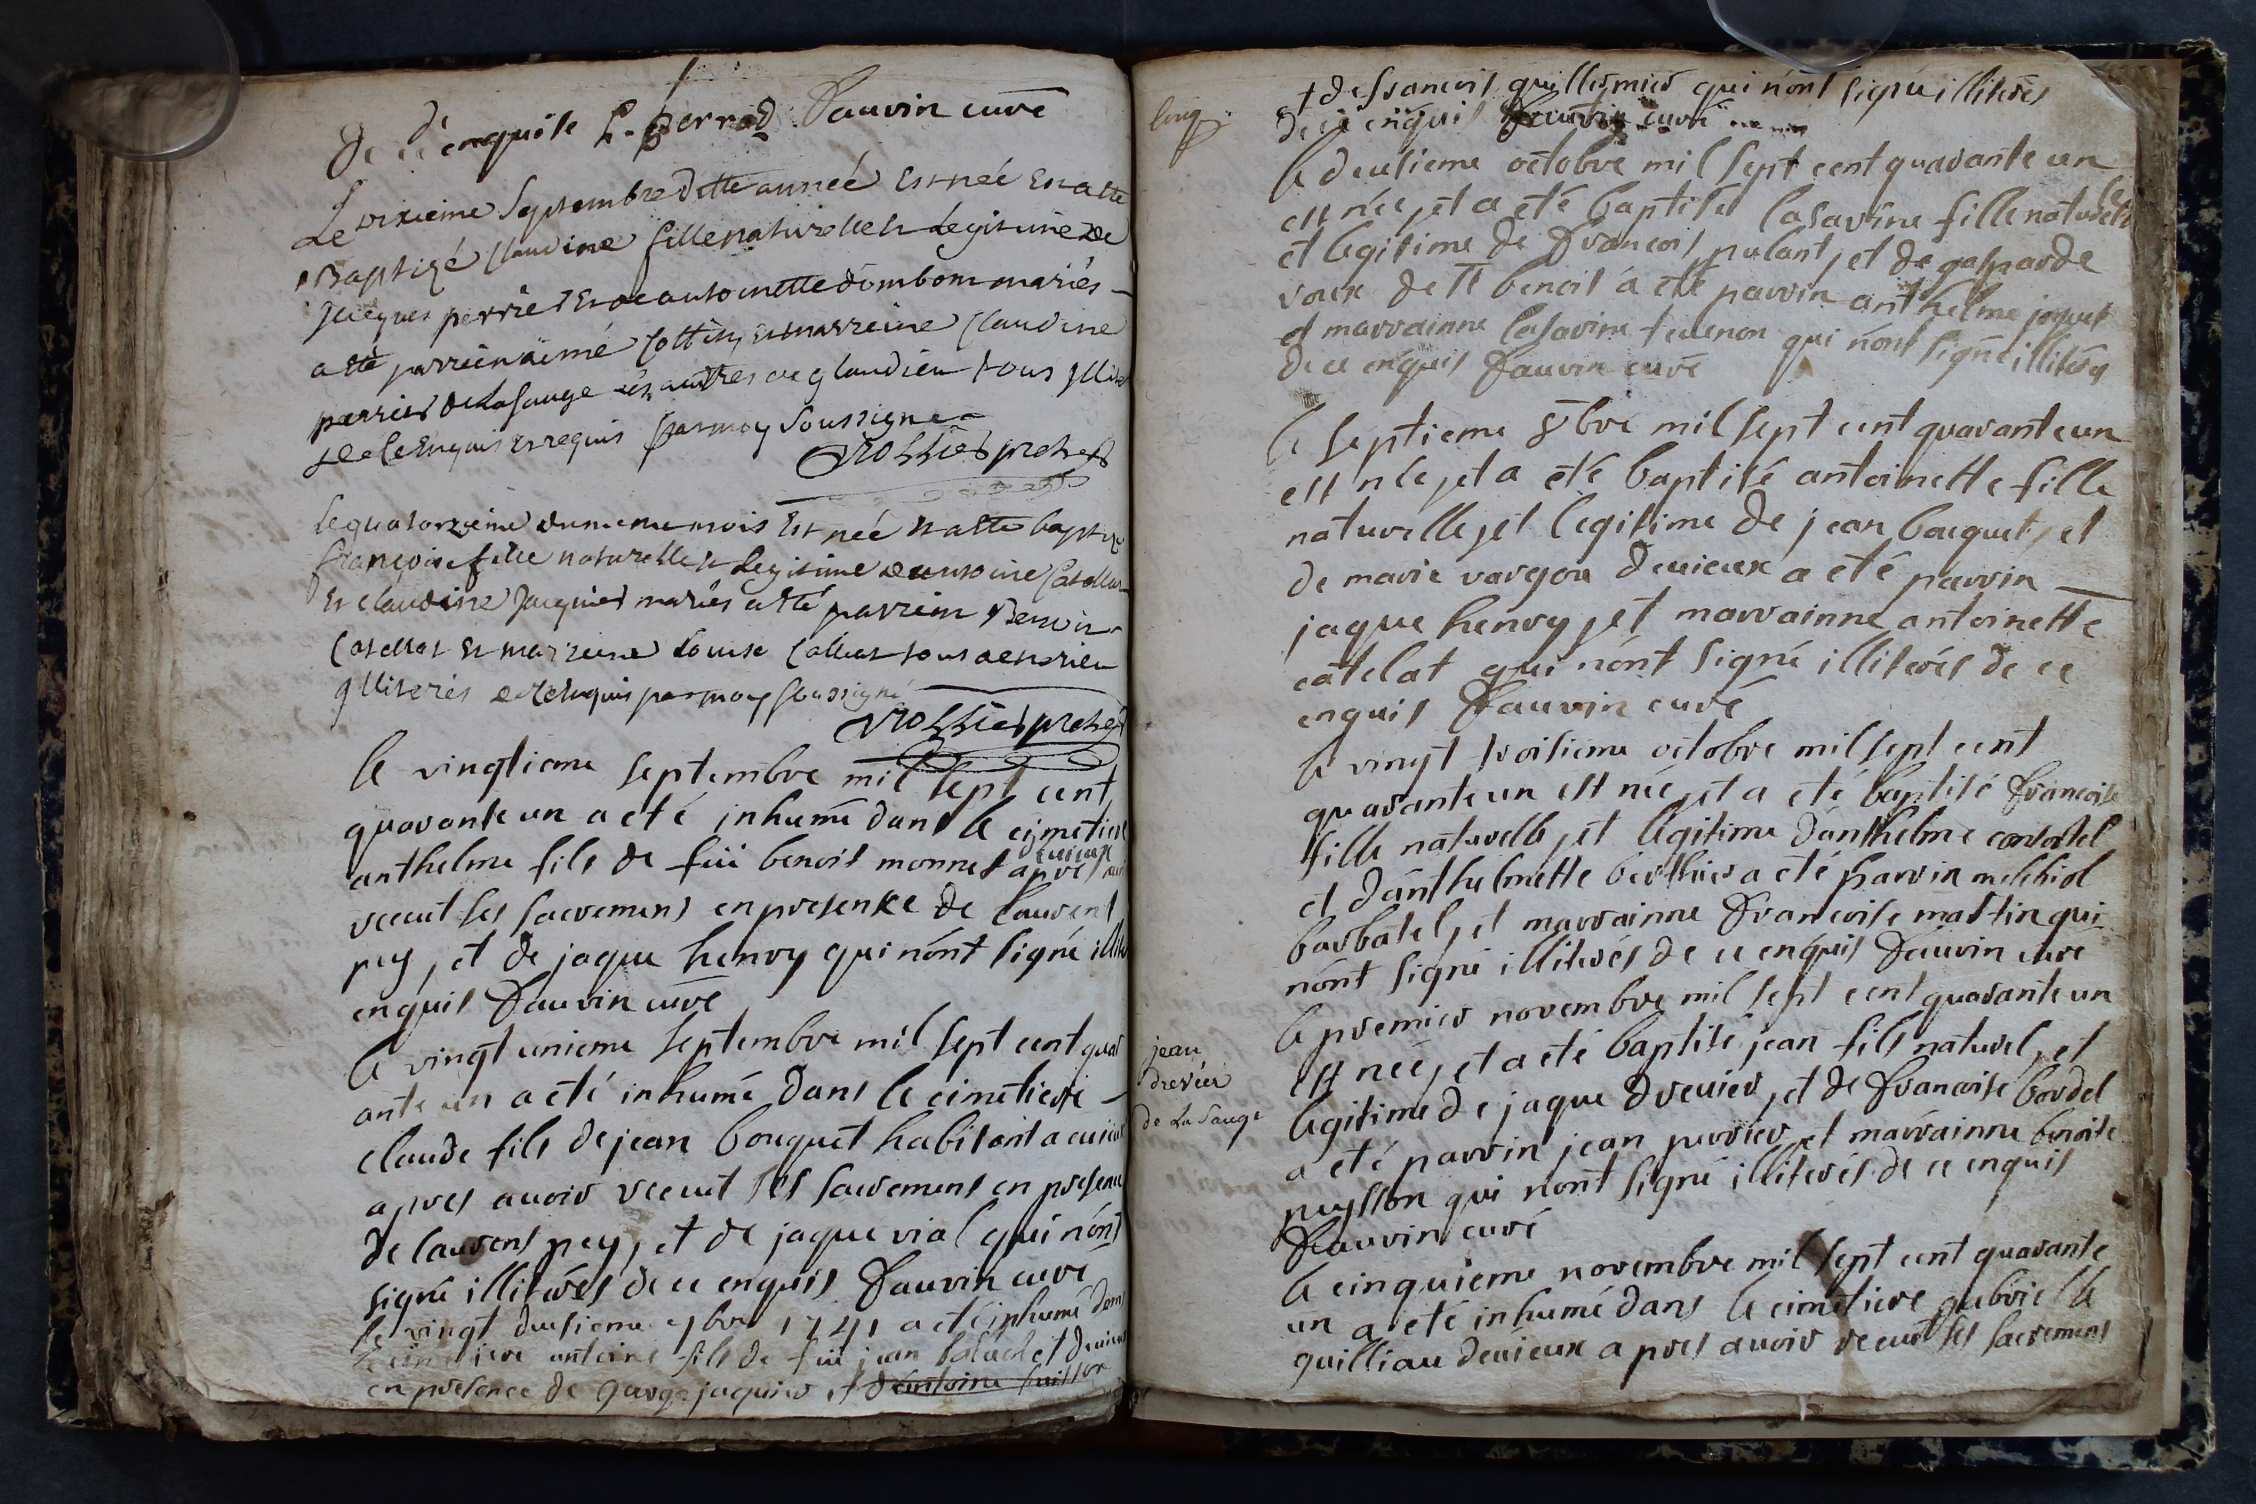 de ce enquise L. perrod fauvin curé
Le dixieme Septembre dette année Est née Et a Ete
Baptizé Claudine fille naturelle et Legitime De
Jacques perrier Et de antoinette dombom mariés
a ete parrein aimé Cottin, Et marreine Claudine
perrier de Lasauge autres de glandieu tous
de ce Enquis Et requis par moy Soussigne
Rossier pretre
Le quatorzieme du meme mois Est née Et a Ete bapt
françoise fille naturelle et Legitime de antoine Catellat
Et Claudine Jacquier mariés a Eté parrein Benoit
Catellat Et marreine Louise tous de
illiterés de ce Enquis par moy Soussigné
Rossier pretre
le vingtieme septembre mil sept cent
quarante un a eté inhumé dans le cymetiere
anthelme fils de füi benoit monnet cuieux apres avoir
receut ses sacremens en presence de laurent
pey, et de jaque henry qui nónt signé
enquis fauvin curé
le vingt unieme septembre mil sept cent quar
ante un a eté inhumé dans le cimetiere
claude fils de jean bouquet habitant a cuieux
apres avoir receut ses sacremens en presence
de laurens pey, et de jaque vial qui nónt
signé illiterés de ce enquis fauvin curé
le vingt deusieme 7bre 1741 a eté inhumé dans
le cimetiere antoine fils de füi jean et de
en presence de jaquier et dantoine
long
+ de francois guillermier qui nónt signé illiterés
de ce enquis fauvin curé
le deusieme octobre mil sept cent quarante un
est née, et a eté baptisé lasarine fille naturelle
et legitime de francois pulant, et de gasparde
roux de St benoit á eté parrin anthelme joquet
et marrainne lasarine tevenon qui nónt signé illiterés
de ce enquis fauvin curé
le septieme 8bre mil sept cent quarante un
est née, et a eté baptisé antoinette fille
naturelle, et legitime de jean bouquet, et
de marie vargon decuieux a eté parrin
jaque henry, et marrainne antoinette
catelat qui nónt signé illiterés de ce
enquis fauvin curé
le vingt troisieme octobre mil sept cent
quarante un est née, et a eté baptisé francoise
fille naturelle, et legitime danthelme
et danthelmette berthier a eté parrin melchiol
barbatel, et marrainne francoise martin qui
nónt signé illiterés de ce enquis fauvin curé
jean
drevier
de La Sauge
le premier novembre mil sept cent quarante un
est née, et a eté baptisé jean fils naturel, et
legitime de jaque drevier, et de francoise bordel
a eté parrin jean perrier, et marrainne benoite
peysson qui nont signé illiterés de ce enquis
fauvin curé
le cinquieme novembre mil sept cent quarante
un a eté inhumé dans le cimetiere gabrielle
guilliau decuieux apres avoir receut ses sacremens